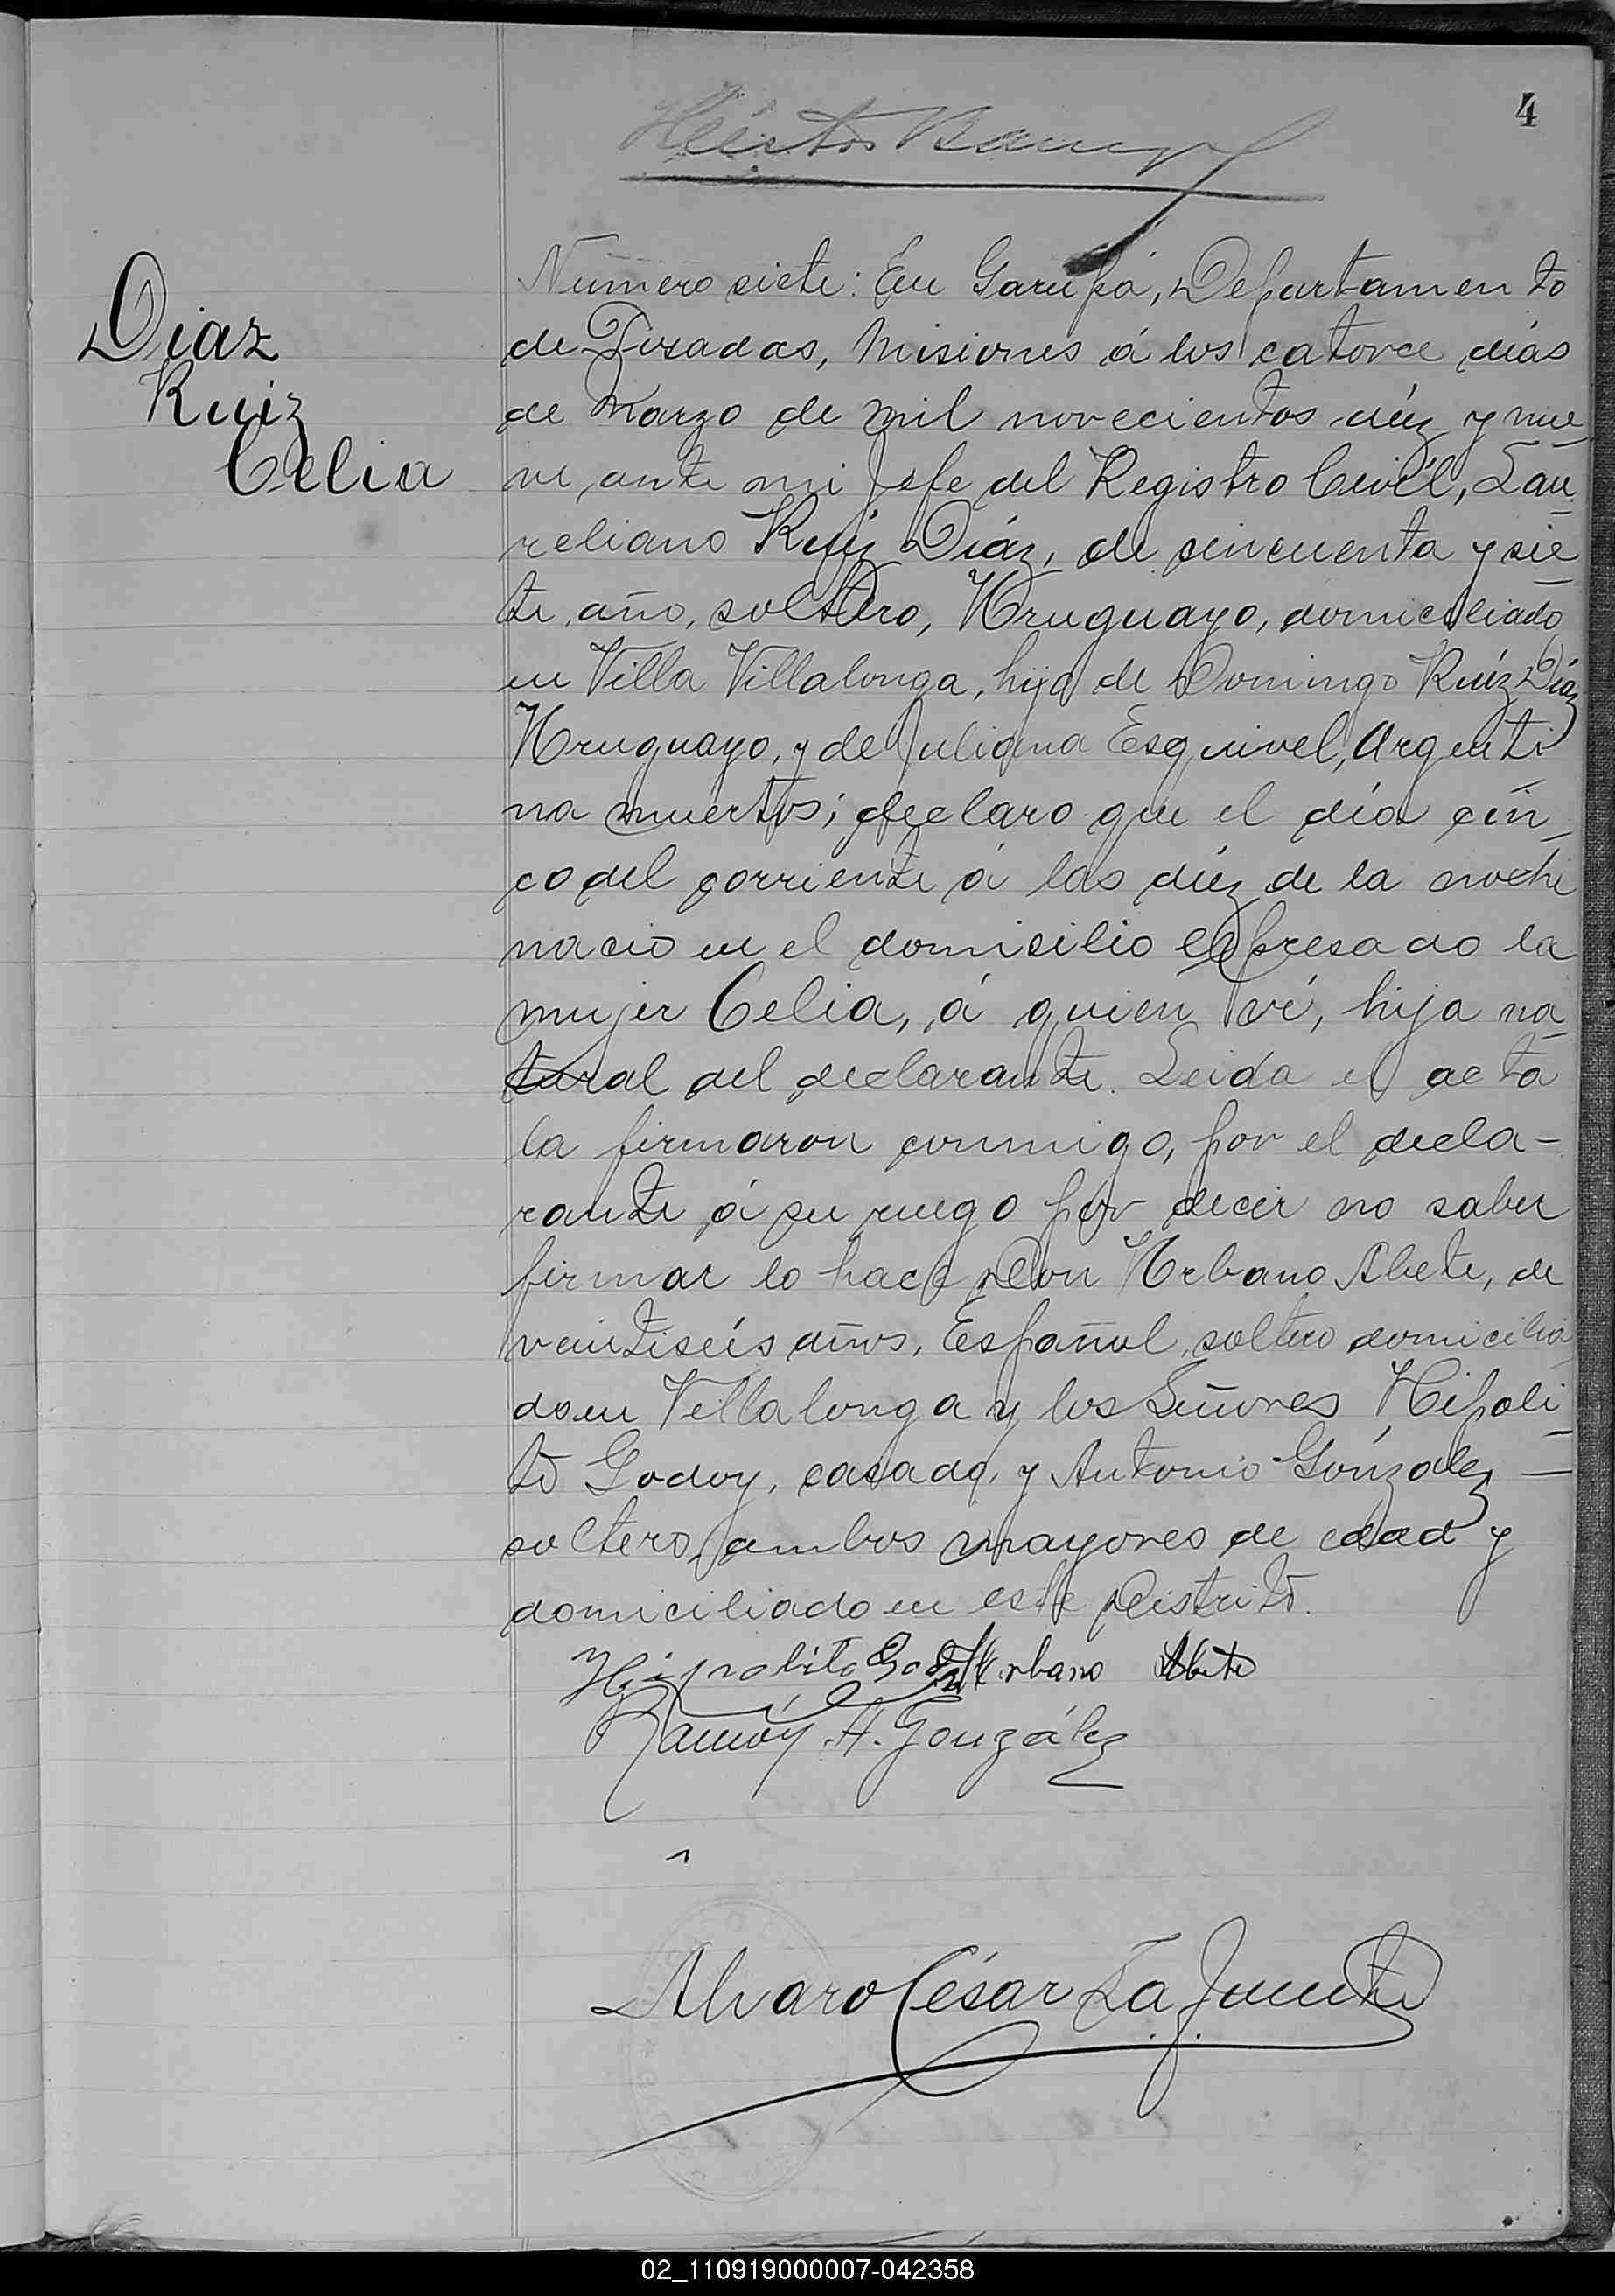 4
Héctor
Diaz
Ruiz
Celia
Número siete: En Garupá, Departamento
de Posadas, Misiones á los catorce dias
de Marzo de mil novecientos diéz y nue
ve, ante mi Jefe del Registro Civil, Lau
reliano Ruíz Diáz, de cincuenta y sie
te, año, soltero, Uruguayo, domiciliado
en Villa Villalonga, hijo de Domingo Ruíz Diáz
Uruguayo, y de Juliana Esquivel, Argenti
na muertos; declaro que el día cin
co del corriente á las diéz de la noche
nacio en el domicilio espresado la
mujer Celia, á quien vé, hija na
tural del declarante. Leida el acta
la firmaron conmigo, por el decla-
rante á su ruego por decir no saber
firmar lo hace Don Urbano Abete, de
veintiseís años, Español, soltero domicilia
do en Villalonga y los Señores Hipoli
to Godoy, casado, y Antonio Gónzalez —
soltero, ambos mayores de edad y
domiciliado en este Distrito.
Hipolito Godoy Urbano Abete
Ramón A. González
Alvaro César La Fuente
02_110919000007-042358